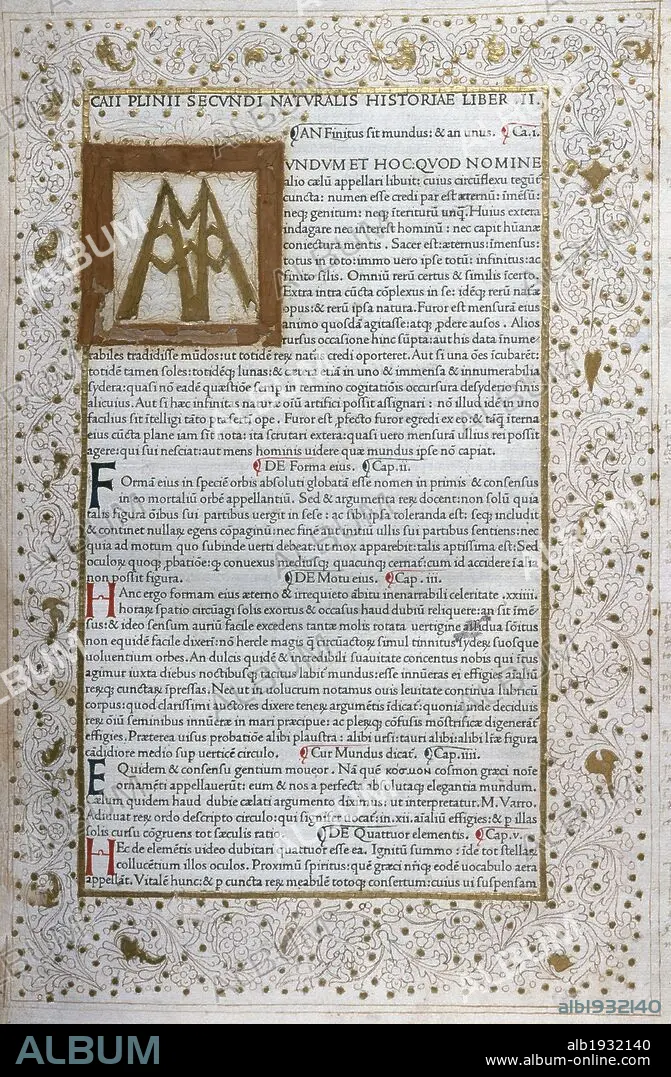 CAII PLINII SECVNDI NATVRALIS HISTORIAE LIBER .II.
AN Finitus sit mundus: & an unus. Ca.i.
M
VNDVM ET HOC.QVOD NOMINE
alio cælū appellari libuit: cuius circūflexu tegūt̄
cuncta: numen esse credi par est æternū: īmēsū:
neq; genitum: neq; īteriturū unq̄. Huius extera
indagare nec interest hominū: nec capit hūanæ
coniectura mentis. Sacer est: æternus: īmensus:
totus in toto: immo uero ipse totū: infinitus: ac
finito silis. Omniū rerū certus & similis īcerto.
Extra intra cūcta cōplexus in se: idēq; rerū naturæ
opus: & rerū ipsa natura. Furor est mensurā eius
animo quosdā agitasse: atq; ,pdere ausos. Alios
rursus occasione hinc sūpta: aut his data īnume
rabiles tradidisse mūdos: ut totidē reꝝ naturas credi oporteret. Aut si una oēs īcubarēt:
totidē tamen soles: totidēq; lunas: & cætera etiā in uno & immensa & innumerabilia
sydera: quasi nō eadē quæstiōe semp in termino cogitatiōis occursura desyderio finis
alicuius. Aut si hæc infinitas naturæ oīū artifici possit assignari: nō illud idē in uno
facilius sit ītelligi tāto præsertī ope. Furor est ,pfecto furor egredi ex eo: & tāq̄ īterna
eius cūcta plane iam sīt nota: ita scrutari extera: quasi uero mensurā ullius rei possit
agere: qui sui nesciat: aut mens hominis uidere quæ mundus ipse nō capiat.
DE Forma eius. Cap.ii.
F Ormā eius in speciē orbis absoluti globatā esse nomen in primis & consensus
in eo mortaliū orbē appellantiū. Sed & argumenta reꝝ docent: non solū quia
talis figura oībus sui partibus uergit in sese: ac sibi ipsa toleranda est: seq; includit
& continet nullaꝝ egens cōpaginū: nec finem aut initiū ullis sui partibus sentiens: nec
quia ad motum quo subinde uerti debeat: ut mox apparebit: talis aptissima est: Sed
oculoꝝ quoq; ,pbatiōe: q, conuexus mediusq; quacunq; cernat̄: cum id accidere ī alia
non possit figura. DE Motu eius. Cap.iii.
H Anc ergo formam eius æterno & irrequieto ābitu inenarrabili celeritate .xxiiii.
horaꝝ spatio circūagi solis exortus & occasus haud dubiū reliquere: an sit īmē
sus: & ideo sensum auriū facile excedens tantæ molis rotatæ uertigine assidua sōitus
non equidē facile dixerī: nō hercle magis q̄ circūactoꝝ simul tinnitus syderꝝ suosque
uoluentium orbes. An dulcis quidē & incredibili suauitate concentus nobis qui intus
agimur iuxta diebus noctibusq; tacitus labit̄ mundus: esse innūeras ei effigies aīaliū
reꝝq; cunctaꝝ īpressas. Nec ut in uolucrum notamus ouis leuitate continua lubricū
corpus: quod clarissimi auctores dixere teneꝝ argumētis īdicat̄: quoniā inde deciduis
reꝝ oīū seminibus innūeræ in mari præcipue: ac pleꝝq; cōfusis mōstrificæ digenerāt
effigies. Præterea uisus probatiōe alibi plaustra: alibi ursi: tauri alibi: alibi līæ figura
cādidiore medio sup uerticē circulo. Cur Mundus dicat̄. Cap.iiii.
E Quidem & consensu gentium moueor. Nā quē κοσμον cosmon græci noīe
ornamēti appellauerūt: eum & nos a perfecta absolutaq; elegantia mundum.
Cælum quidem haud dubie cælati argumento diximus: ut interpretatur.M.Varro.
Adiuuat reꝝ ordo descripto circulo: qui signifer uocat̄: in.xii.aīaliū effigies: & p illas
solis cursu cōgruens tot sæculis ratio. DE Quattuor elementis. Cap.v.
H Ec de elemētis uideo dubitari quattuor esse ea. Ignitū summo: īde tot stellaꝝ
collucētium illos oculos. Proximū spiritus: quē græci nr̄iq; eodē uocabulo aera
appellāt. Vitalē hunc: & p cuncta reꝝ meabilē totoq; consertum: cuius ui suspensam
ALBUM
alb1932140
ALBUM
alb1932140
www.album-online.com